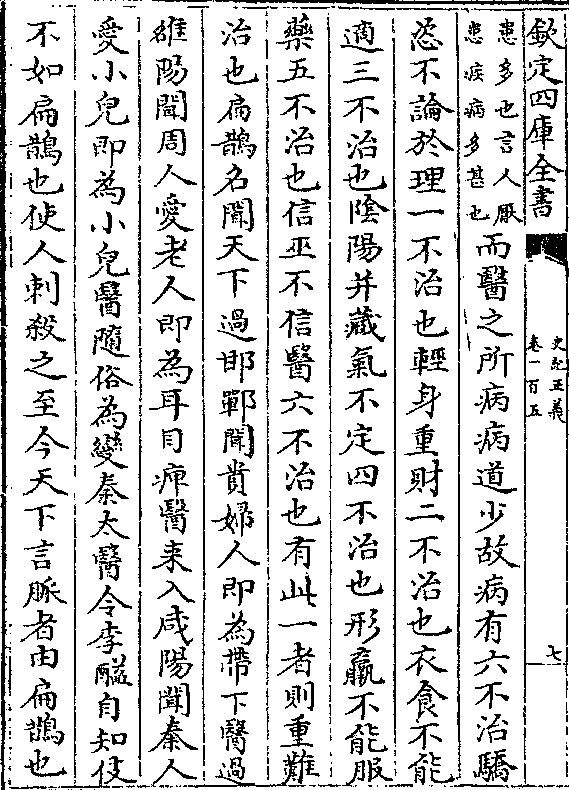 欽定四庫全書
史記正義
卷一百五
七
患多也言人厭
患疾病多甚也
而醫之所病病道少故病有六不治驕
恣不論於理一不治也輕身重財二不治也衣食不能
適三不治也陰陽并藏氣不定四不治也形羸不能服
藥五不治也信巫不信醫六不治也有此一者則重難
治也扁鵲名聞天下過邯鄲聞貴婦人即為帶下醫過
雒陽聞周人愛老人即為耳目痹醫来入咸陽聞秦人
愛小兒即為小兒醫隨俗為變秦太醫令李醯自知伎
不如扁鵲也使人刺殺之至今天下言脈者由扁鵲也